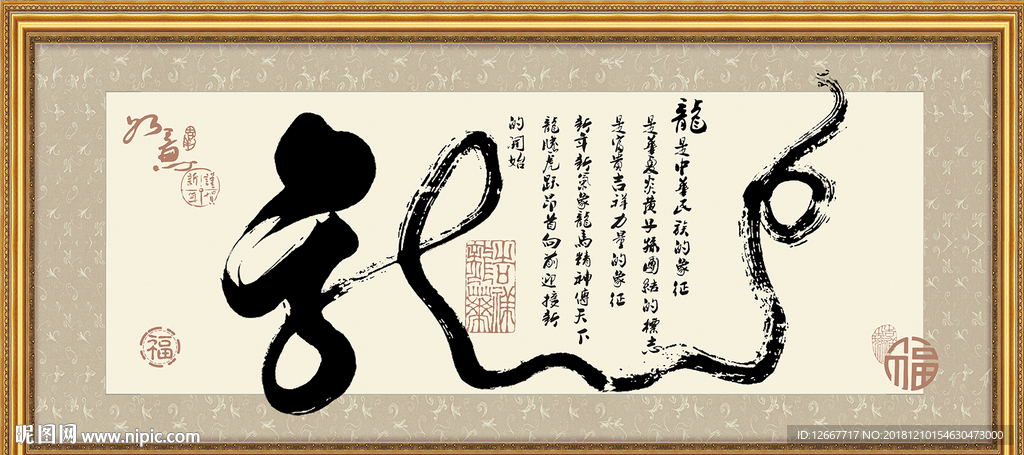 龍
龍是中華民族的象征
是華夏炎黄子孫團結的標志
是富貴吉祥力量的象征
新年新氣象龍馬精神傳天下
龍騰虎跃昂首向前迎接新
的開始
如意
謹賀新年
福
福
昵图网 www.nipic.com
ID:12667717 NO:20181210154630473000